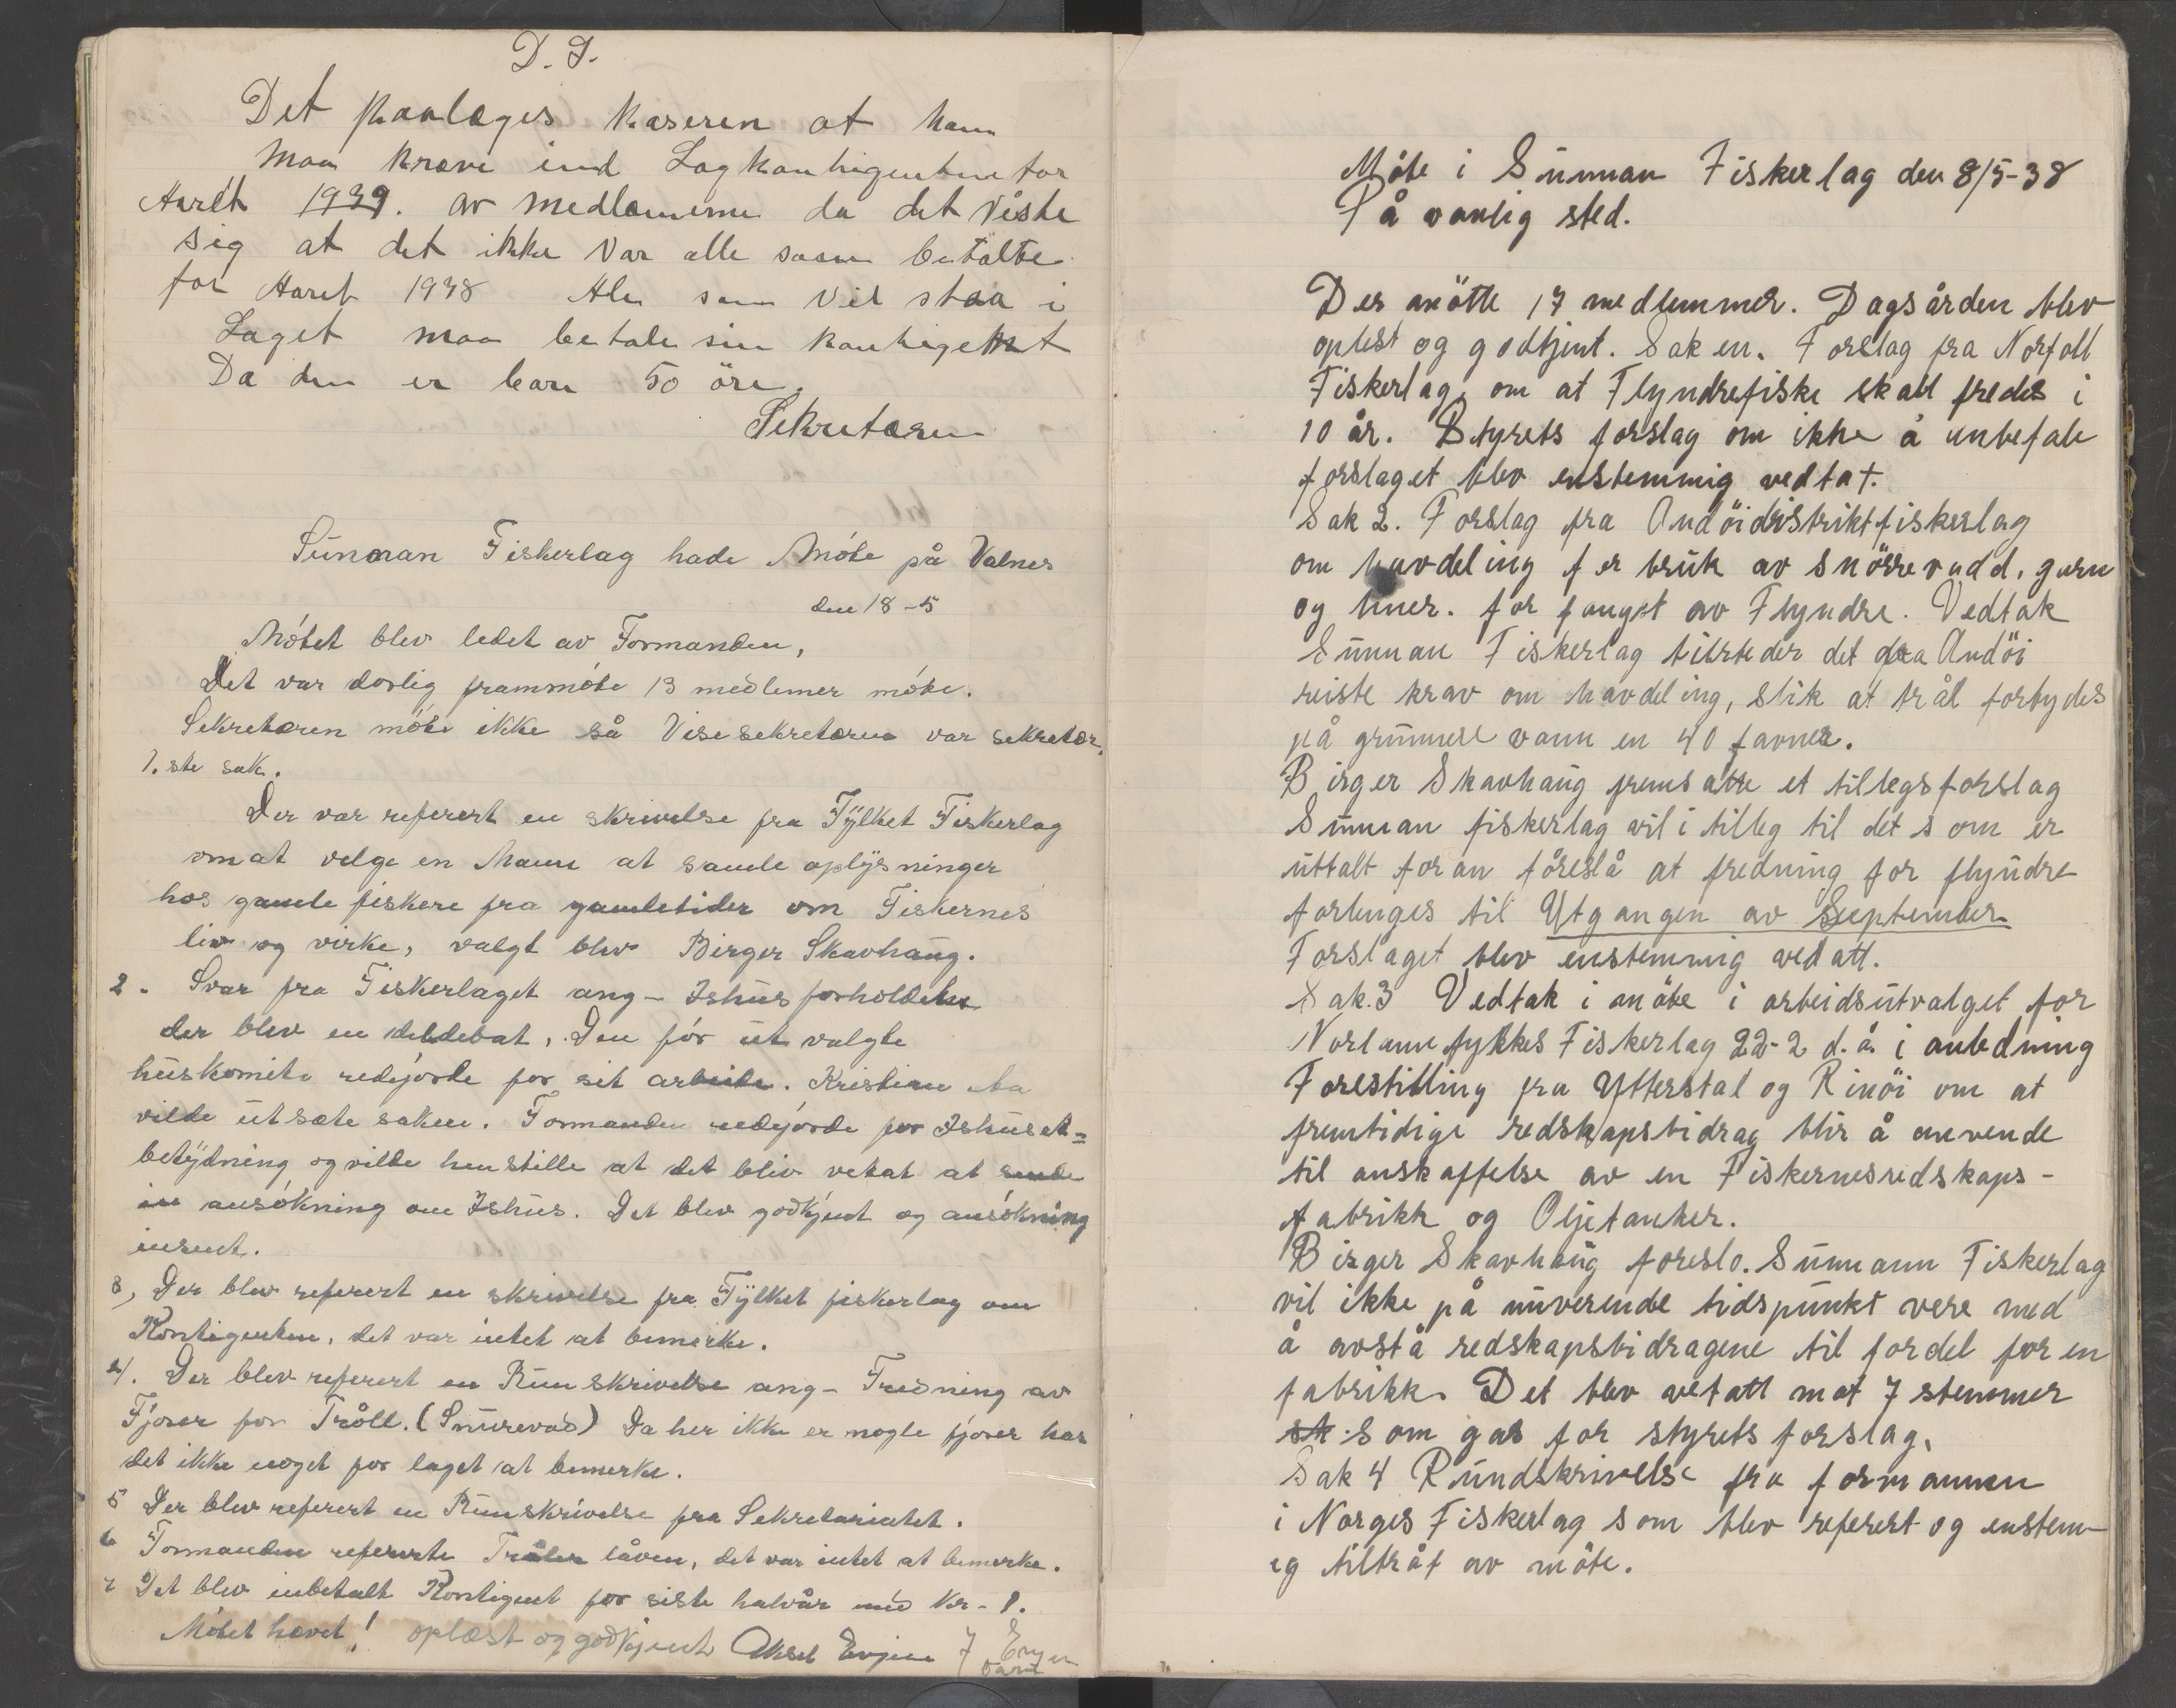 D. S.
Det paalæges kaseren at han
maa kræve ind Lagkontigenten for
Aaret 1939. av medlemerne da det viste
sig at det ikke var alle som betalte
for Aaret 1938 Ale som vil staa i
Laget maa betale sin kontigent
Da den er bare 50 öre.
Sekretæren
Sünnan Fiskerlag hade Móte på Valnes
den 18-5
Mótet blev ledet av Formanden,
Det var dorlig frammóte 13 medlemer móte.
Sekretæren móte ikke så Visesekretæren var sekretær.
1. ste sak.
Der var referert en skrivelse fra Fylket Fiskerlag
om at velge en Mann at samle oplysninger
hos gamle fiskere fra gamletider om Fiskernes
liv og virke, valgt blev Birger Skavhaüg.
2. Svar fra Fiskerlaget ang- Ishüs forholdene
der blev en deldebat, Den fór üt valgte
hüskomite redejórde for sit arbeide. Kristian
vilde ütsæte saken. Formanden redejórde for Ishüset=
betydning og vilde henstille at det bliv vetat at sende
in ansókning om Ishüs. Det blev godkjent og ansókning
insent.
3, Der blev referert en skrivelse fra Fylket fiskerlag om
Kontigenten, det var intet at bemerke.
4. Der blev referert en Rünskrivelse ang- Fredning av
Fjorer for Tråll. (Snürevad) Da her ikke er nogle fjorer har
det ikke noget for laget at bemerke.
5 Der blev referert en Rünskrivelse fra Sekretariatet.
6 Formanden refererte Tråler låven, det var intet at bemerke.
7 Det blev inbetalt Kontigent for siste halvår med Kr- 1.
Mótet hævet! oplæst og godkjent Aksel Evjen
Möte i Sünnan Fiskerlag den 8/5-38
På vanlig sted.
Der mötte 17 medlemmer. Dagsården blev
oplest og godtjent. Sak en. Forslag fra Norfoll
Fiskerlag, om at Flyndrefiske skall fredes i
10 år. Styrets forslag om ikke å anbefale
forslaget blev enstemmig vedtat.
Sak 2. Forslag fra Andöidistriktfiskerlag
om havdeling fer bruk av snörrevadd, garn
og liner. for fangst av Flyndre. Vedtak
Sünnan Fiskerlag tilrteder det fra Andöi
reiste krav om havdeling, slik at trål forbydes
på grünnere vann en 40 favner.
Birger Skavhaüg fremsatte et tillegsforslag
Sünnan fiskerlag vil i tilleg til det som er
üttalt foran föreslå at fredning for flyndre
forlenges til Utgangen av September
Forslaget blev enstemmig vedatt.
Sak.3 Vedtak i möte i arbeidsütvalget for
Norlann fykkes Fiskerlag 22-2 d.å. i anledning
Forestilling fra Ytterstal og Rinöi om at
fremtidige redskapsbidrag blir å anvende
til anskaffelse av en Fiskernesredskaps-
fabrikk og Oljetanker.
Birger Skavhaüg foreslo. Sünnann Fiskerlag
vil ikke på nüverende tidspünkt vere med
å avstå redskapsbidragene til fordel for en
fabrikk. Det blev vetatt mot 7 stemmer
st. som gas for styrets forslag.
Sak 4 Ründskrivelse fra formannen
i Norges Fiskerlag som blev referert og enstem-
ig tiltråt av möte.